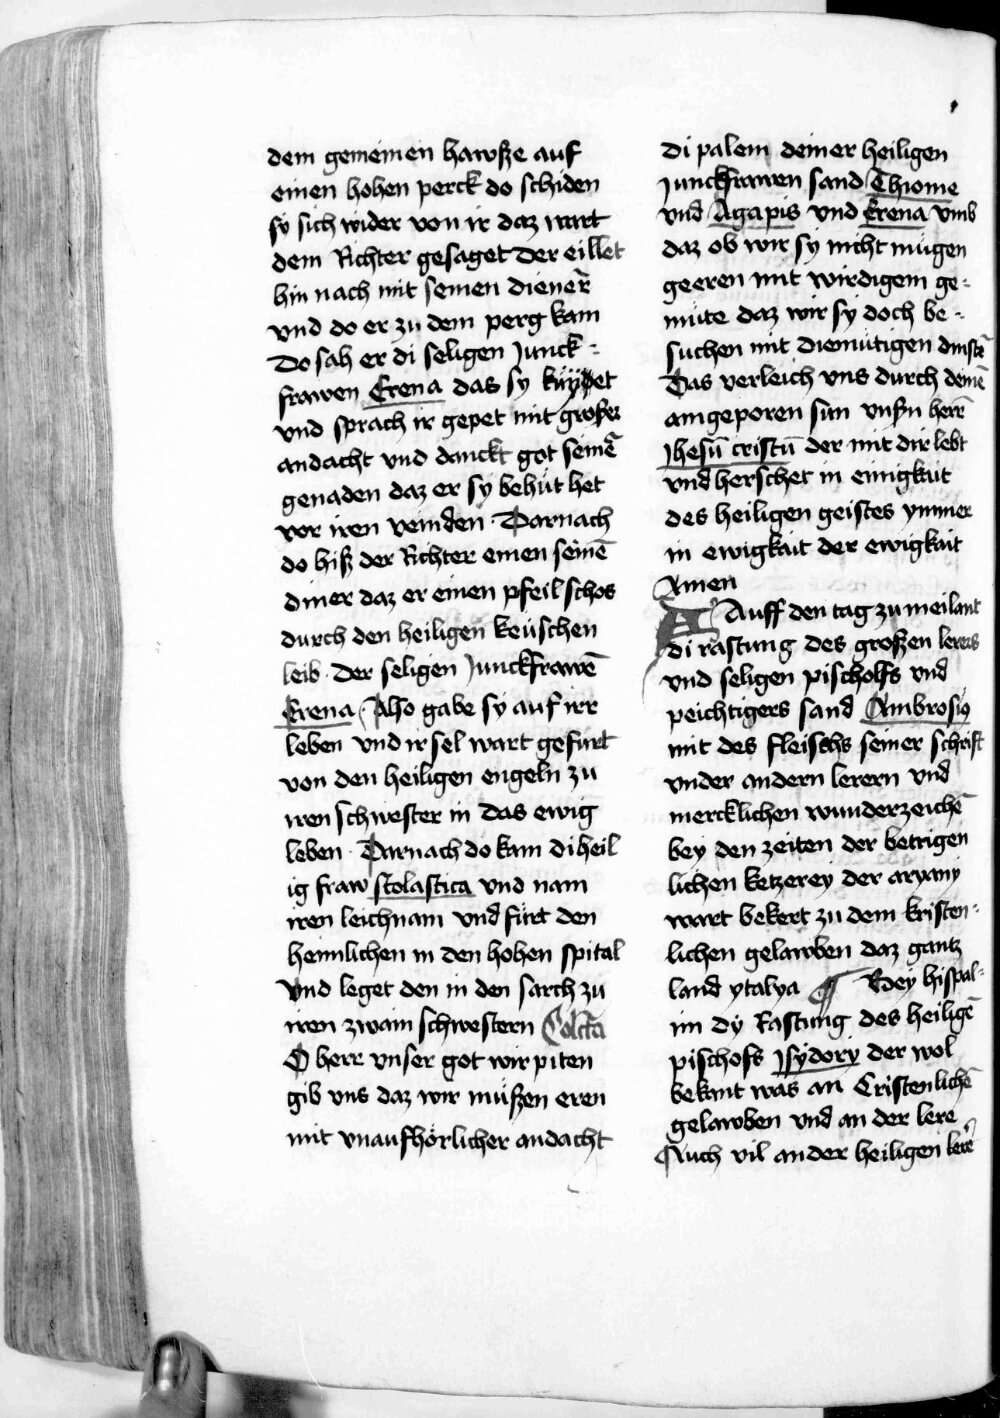 dem gemeinen hawsze auf
einen hohen perck do schiden
sy sich wider von ir daz wart
dem Richter gesaget Der eillet
hin nach mit seinen dienern̄
vnd do er zu dem perg kam
Do sah er di seligen Junck-
frawen Erena das sy knyet
vnd sprach ir gepet mit groszer
andacht vnd danckt got seinē
genaden daz er sy behüt het
vor iren veinden · Darnach
do hisz der Richter einen seinē
diner daz er einen pfeil schos
durch den heiligen keuschen
leib der seligen Junckfrawē
Erena Also gabe sy auf irr
leben vnd ir sel wart gefurt
von den heiligen engeln zu
iren schwester in das ewig
leben · Darnach do kam di heil
ig fraw scolastica vnd nam
iren leichnam vnd fürt den
heimlichen in den hohen spital
Vnd leget den in den sarch zu
iren zwain schwestern Colcta
O herr vnser got wir piten
gib vns daz wir müszen eren
mit vnaufhörlicher andacht
di palem deiner heiligen
Junckfrawen sand Thiome
vnd Agapis vnd Erena vmb
daz ob wir sy nicht mugen
geeren mit wirdigem ge-
müte daz wir sy doch be-
suchen mit diemutigen dinstē
Das verleich vns durch deinē
aingeporen sun vnsrn herrē
Jhesū cristū der mit dir lebt
vnd herschet in einigkait
des heiligen geistes ymmer
in ewigkait der ewigkait
Amen
Auff den tag zu meilant
di rastung des groszen lerers
vnd seligen pischolfs vnd
peichtigers sand Ambrosij
mit des fleischs seiner schrift
vnder andern lerern vnd
mercklichen wunderzeichē
bey den zeiten der betrigen
lichen ketzerey der aryany
wart bekert zu dem kristen-
lichen gelawben daz gantz
land ytalya ¶ Bey hispal-
im dy Rastung des heiligē
pischofs Jsydory der wol
bekant was an Cristenlichē
gelawben vnd an der lere
Auch vil ander heiligen lerē